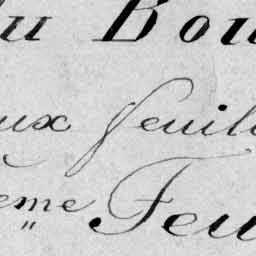 du Bou
ux feuil
eme Feu